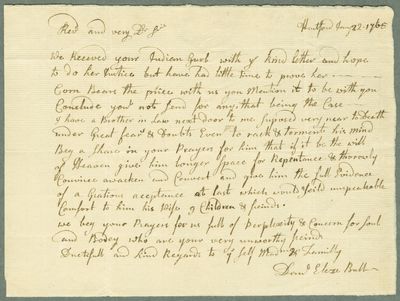 Revd and very Dr Sir
Hartford Jany 22. 1768
We Receved your Indian Gurl with yr kind letter and hope
to do her Justice but have had little time to prove her
Corn Bears the price with us you Mention it to be with you
Conclude you'l not send for any, that being the Case
I have a Brother in Law next Door to me Suposed very near to Death
under Great fears & Doubts Even to rack & torment his mind
Beg a Share in your Prayers for him that if it be the will
of Heaven give him longer Space for Repentance & throwly
Convince awacken and Convert and give him the full Evidence
of a Gratious acceptance at last which would yeild unspeakable
Comfort to him his Wife & Children & freinds.
we beg your Prayers for us full of Perplexity & Concern for Soul
and Bodey who are your very unworthy freinds
Dutifull and kind Regards to yr self Madm & Familly
Eleze Bull